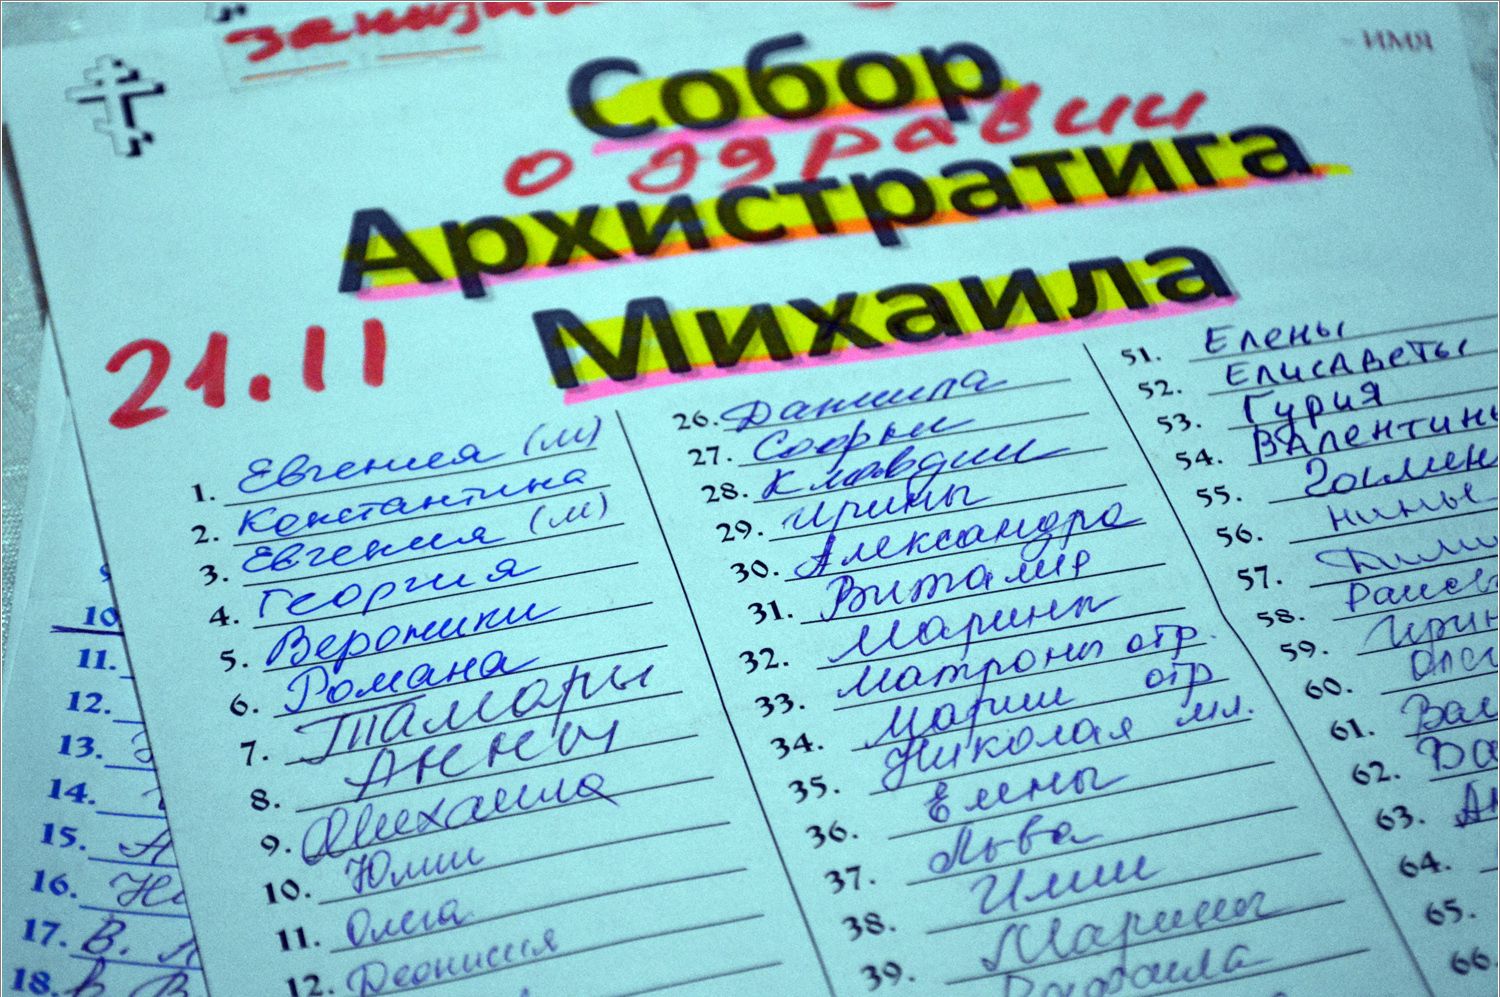 - ИМЯ
Собор
о здравии
Архистратига
Михаила
21.11
1. Евгения (м)
2. Константина
3. Евгения (м)
4. Георгия
5. Вероники
6. Романа
7. Тамары
8. Анны
9. Михаила
10. Юлии
11. Олега
12. Дионисия
26. Даниила
27. Софии
28. Клавдии
29. Ирины
30. Александра
31. Виталия
32. Марины
33. Матроны отр.
34. Марии отр
35. Николая мл.
36. Елены
37. Льва
38. Илии
39. Марины
Рафаила
51. Елены
52. Елисаветы
53. Гурия
54. Валентины
55.
56.
57.
58.
59.
60.
61.
62.
63.
64.
65.
66.
10
11.
12.
13.
14.
15.
16.
17. В.
18. В